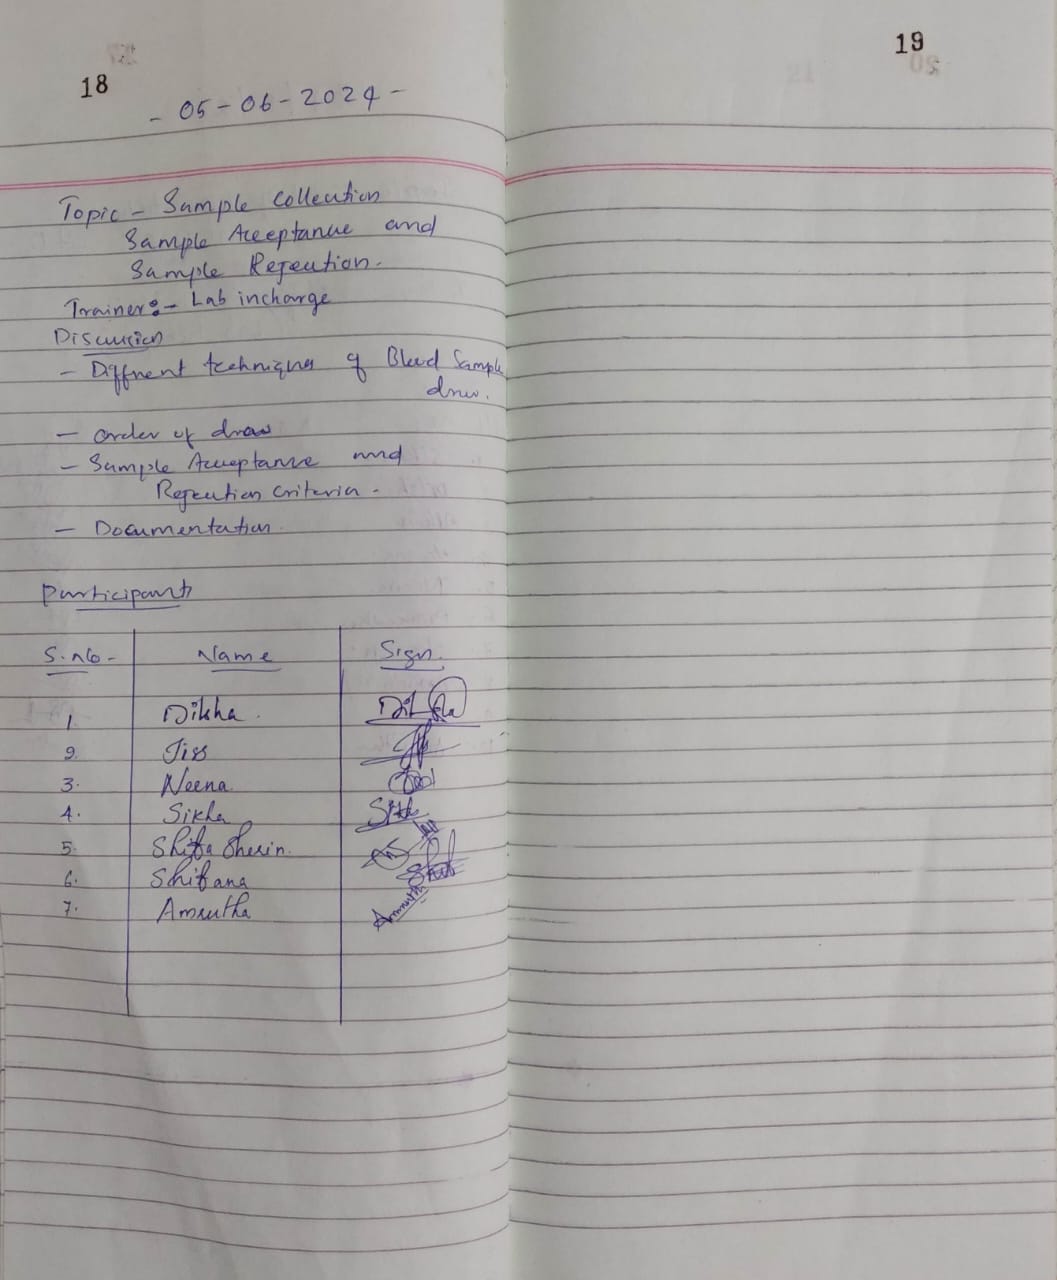 18
19
- 05-06-2024 -
Topic - Sample Collection
Sample Acceptance and
Sample Rejection.
Trainer:- Lab incharge
Discussion
- Diffrent techniques of Blood Sample
draw.
- order of draw
- Sample Acceptance and
Rejection criteria.
- Documentation.
Participants
S.No- Name Sign.
1 Diksha. Diksha
2. Jiss
3. Neena.
4. Sikha Sikh
5. Shifa Sherin.
6. Shifana
7. Amrutha Amrutha